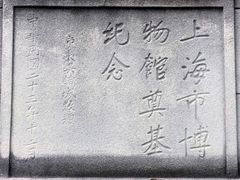 上海市博
物館奠基
紀念
中華民國二十三年十二月